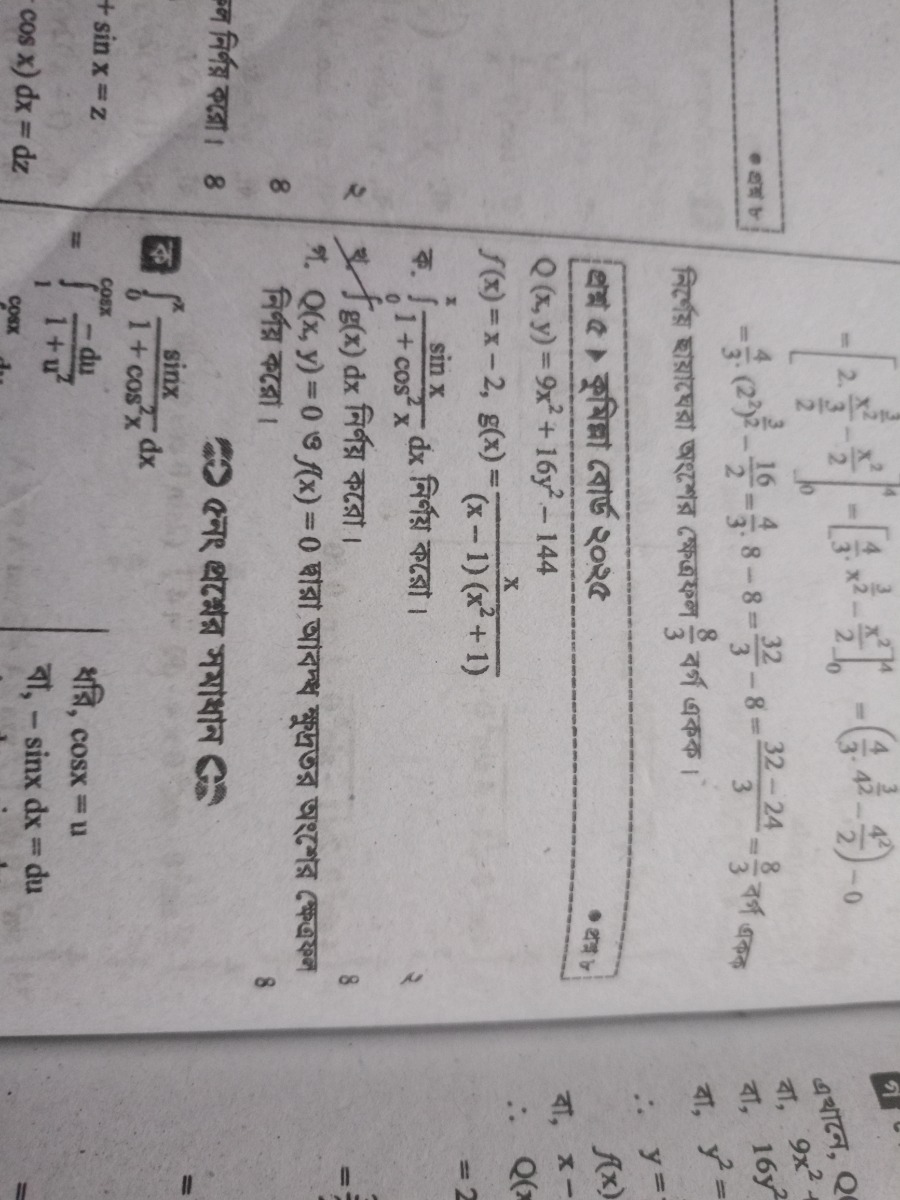 ল নির্ণয় করো। 8
+ sin x = z
cos x) dx = dz
● প্রশ্ন ৮
২
8
= [2. x^(3/2)/(3/2) − x²/2]₀⁴ = [4/3 . x^(3/2) − x²/2]₀⁴ = (4/3 . 4^(3/2) − 4²/2) − 0
= 4/3 . (2²)^(3/2) − 16/2 = 4/3 . 8 − 8 = 32/3 − 8 = (32 − 24)/3 = 8/3 বর্গ একক
নির্ণেয় ছায়াঘেরা অংশের ক্ষেত্রফল 8/3 বর্গ একক।
প্রশ্ন ৫ ▶ কুমিল্লা বোর্ড ২০২৫ ● প্রশ্ন ৮
Q (x, y) = 9x² + 16y² − 144
f(x) = x − 2, g(x) = x/((x − 1) (x² + 1))
ক. ∫₀ˣ sin x/(1 + cos² x) dx নির্ণয় করো। ২
খ. ∫ g(x) dx নির্ণয় করো। 8
গ. Q(x, y) = 0 ও f(x) = 0 দ্বারা আবদ্ধ ক্ষুদ্রতর অংশের ক্ষেত্রফল
নির্ণয় করো। 8
৫নং প্রশ্নের সমাধান
ক ∫₀ˣ sinx/(1 + cos²x) dx
= ∫₁^cosx − du/(1 + u²)
ধরি, cosx = u
বা, − sinx dx = du
cosx
গ
এখানে, Q(
বা, 9x² +
বা, 16y²
বা, y² =
∴ y =
f(x)
বা, x −
∴ Q(x
= 2
=
=
=